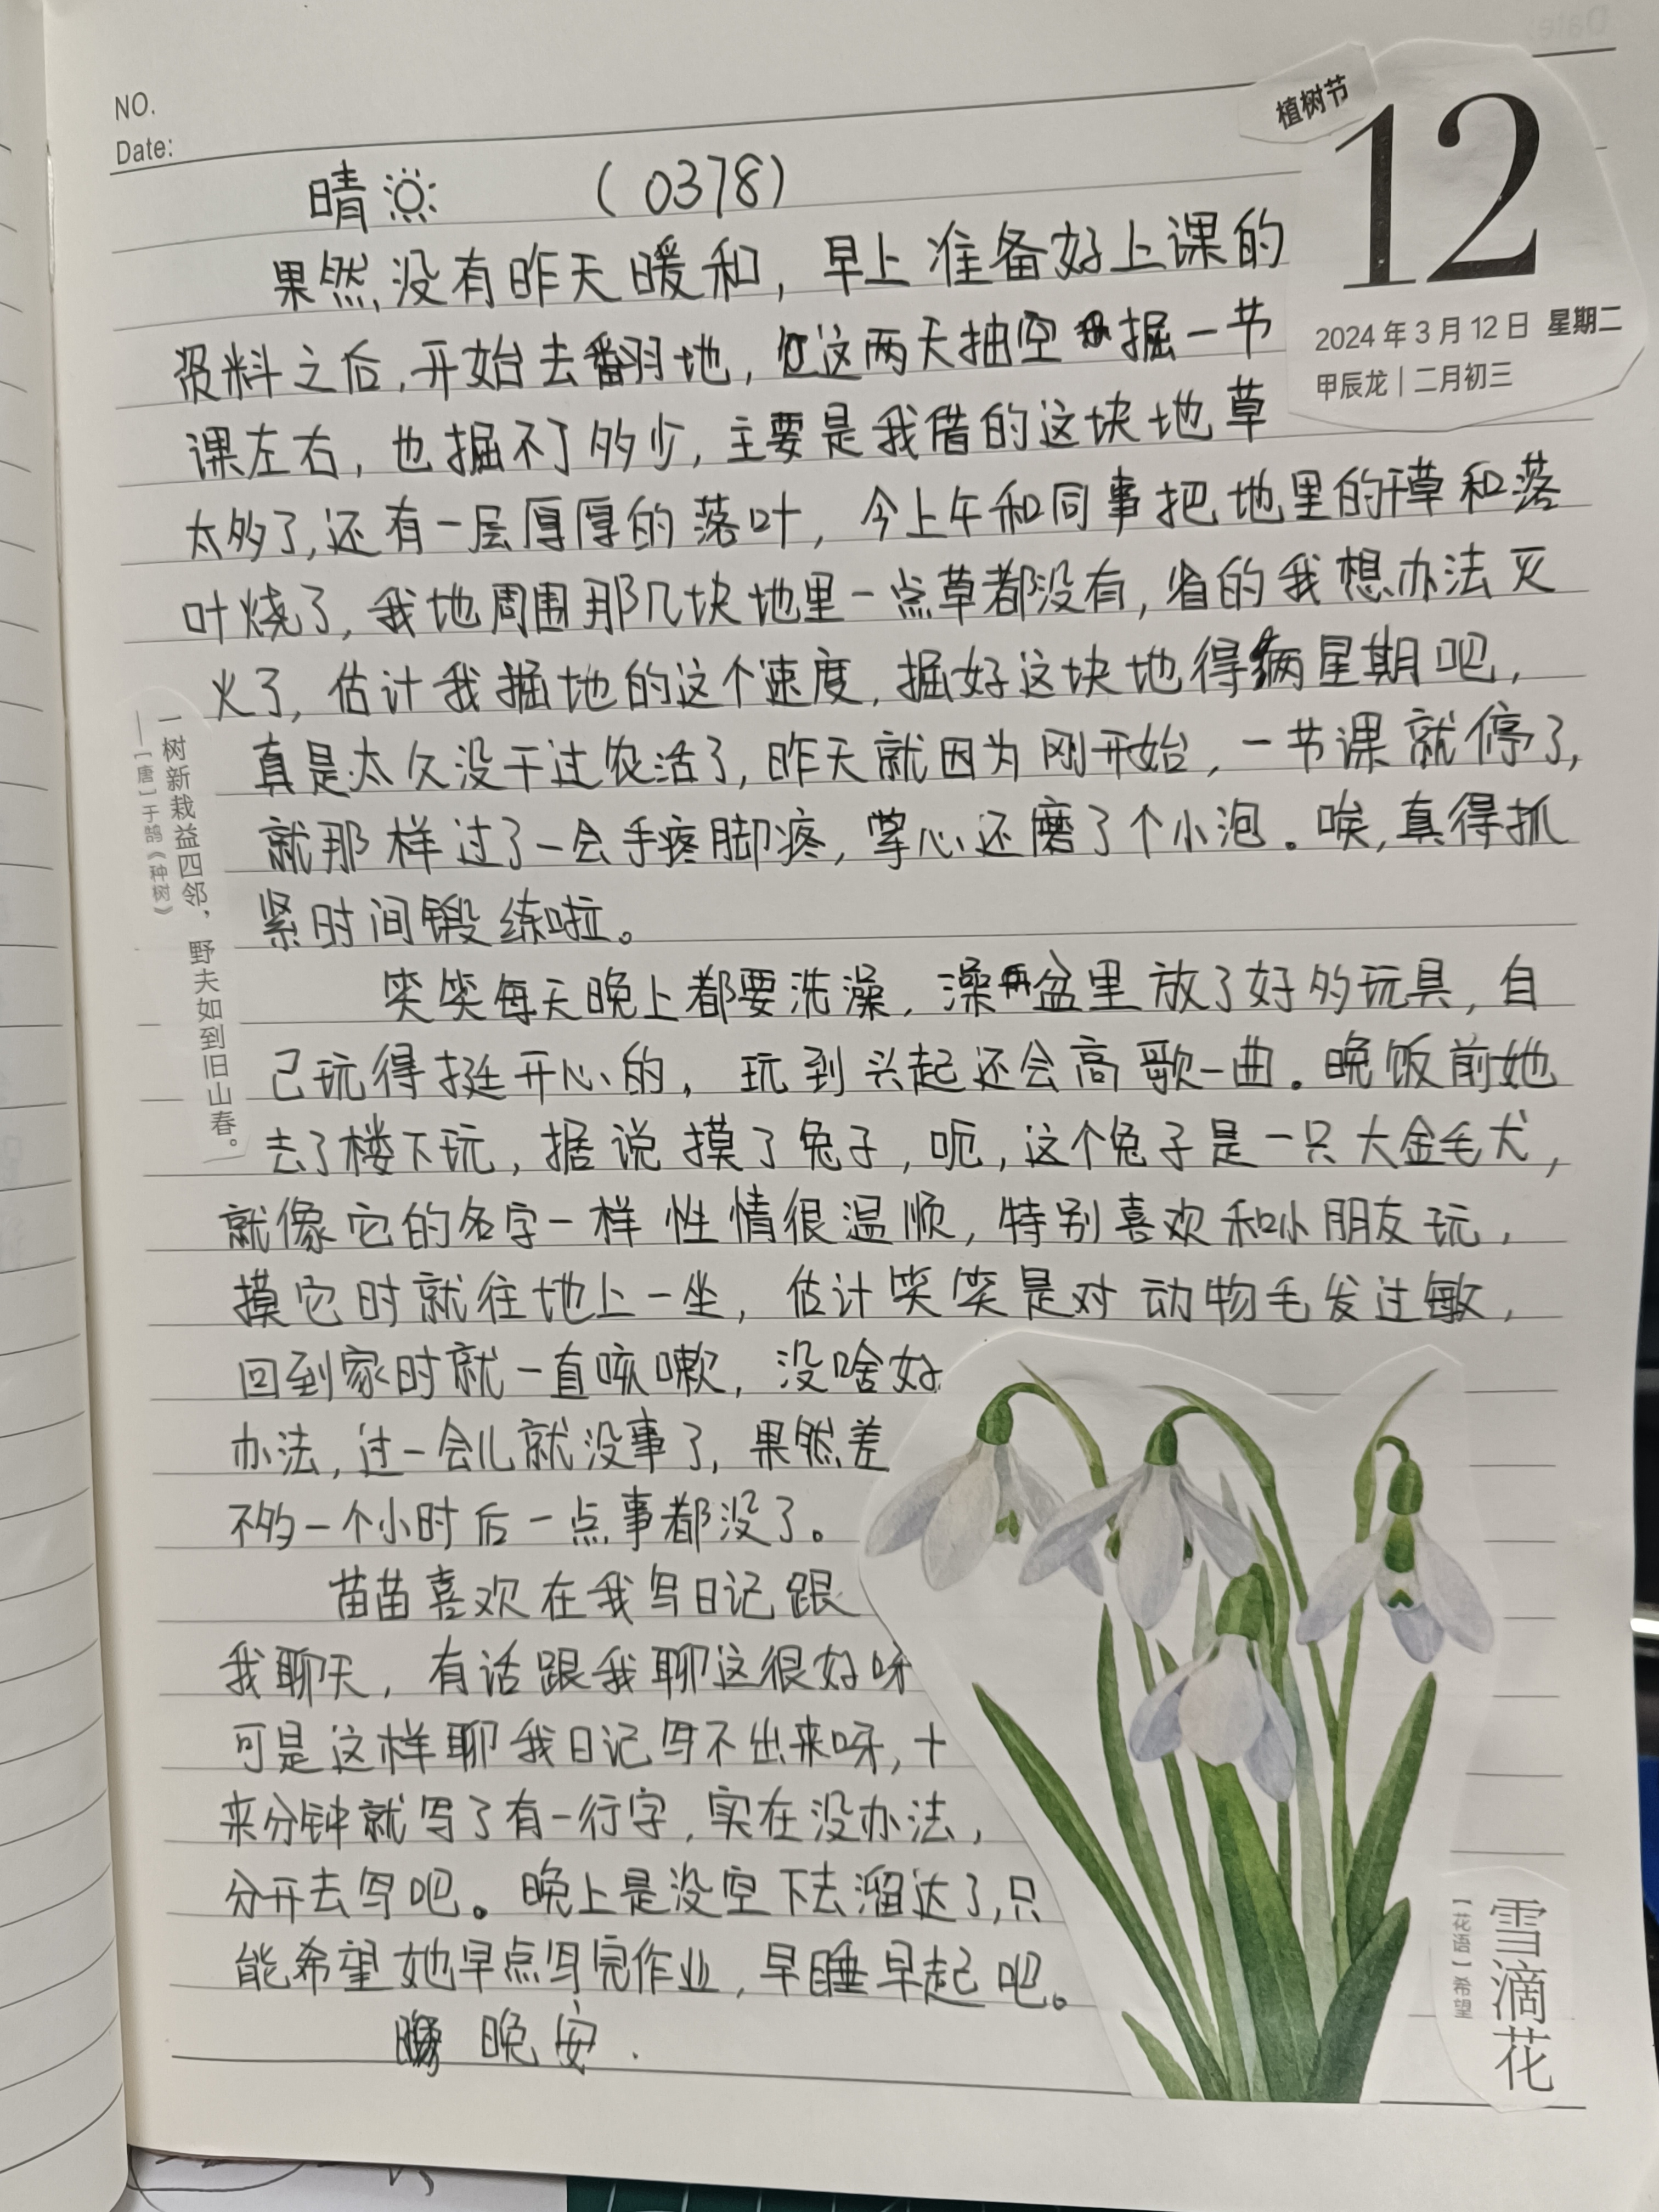 NO.
Date:
植树节
12
2024年3月12日 星期二
甲辰龙|二月初三
晴 (0378)
果然没有昨天暖和，早上准备好上课的
资料之后，开始去翻地，这两天抽空掘一节
课左右，也掘不了多少，主要是我借的这块地草
太多了，还有一层厚厚的落叶，今上午和同事把地里的草和落
叶烧了，我地周围那几块地里一点草都没有，省的我想办法灭
火了，估计我掘地的这个速度，掘好这块地得俩星期吧，
真是太久没干过农活了，昨天就因为刚开始，一节课就停了，
就那样过了一会手疼脚疼，掌心还磨了个小泡。唉，真得抓
紧时间锻练啦。
笑笑每天晚上都要洗澡，澡盆里放了好多玩具，自
己玩得挺开心的，玩到兴起还会高歌一曲。晚饭前她
去了楼下玩，据说摸了兔子，呃，这个兔子是一只大金毛犬，
就像它的名字一样性情很温顺，特别喜欢和小朋友玩，
摸它时就往地上一坐，估计笑笑是对动物毛发过敏，
回到家时就一直咳嗽，没啥好
办法，过一会儿就没事了，果然差
不多一个小时后一点事都没了。
苗苗喜欢在我写日记跟
我聊天，有话跟我聊这很好呀
可是这样聊我日记写不出来呀，十
来分钟就写了有一行字，实在没办法，
分开去写吧。晚上是没空下去溜达了，只
能希望她早点写完作业，早睡早起吧。
晚安.
一树新栽益四邻，野夫如到旧山春。
——[唐]于鹄《种树》
雪滴花
【花语】希望